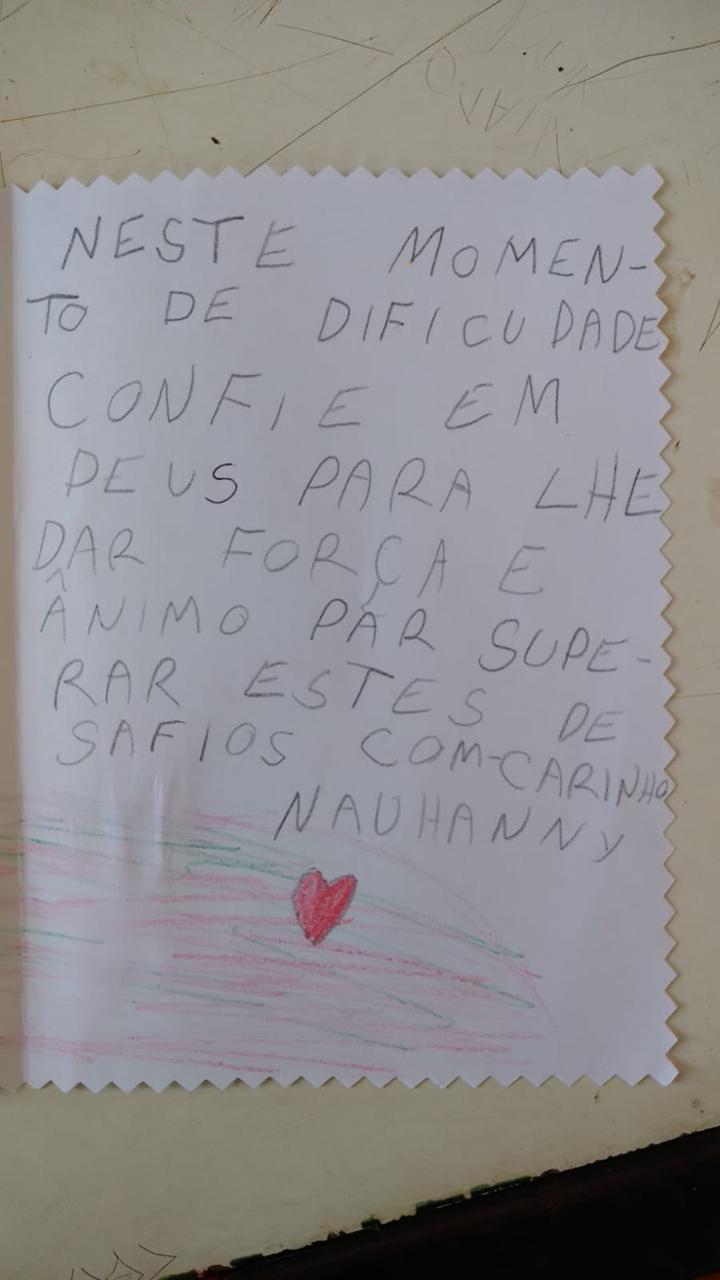 NESTE MOMEN-
TO DE DIFICUDADE
CONFIE EM
DEUS PARA LHE
DAR FORÇA E
ÂNIMO PÁR SUPE-
RAR ESTES DE
SAFIOS COM-CARINHO
NAUHANNY